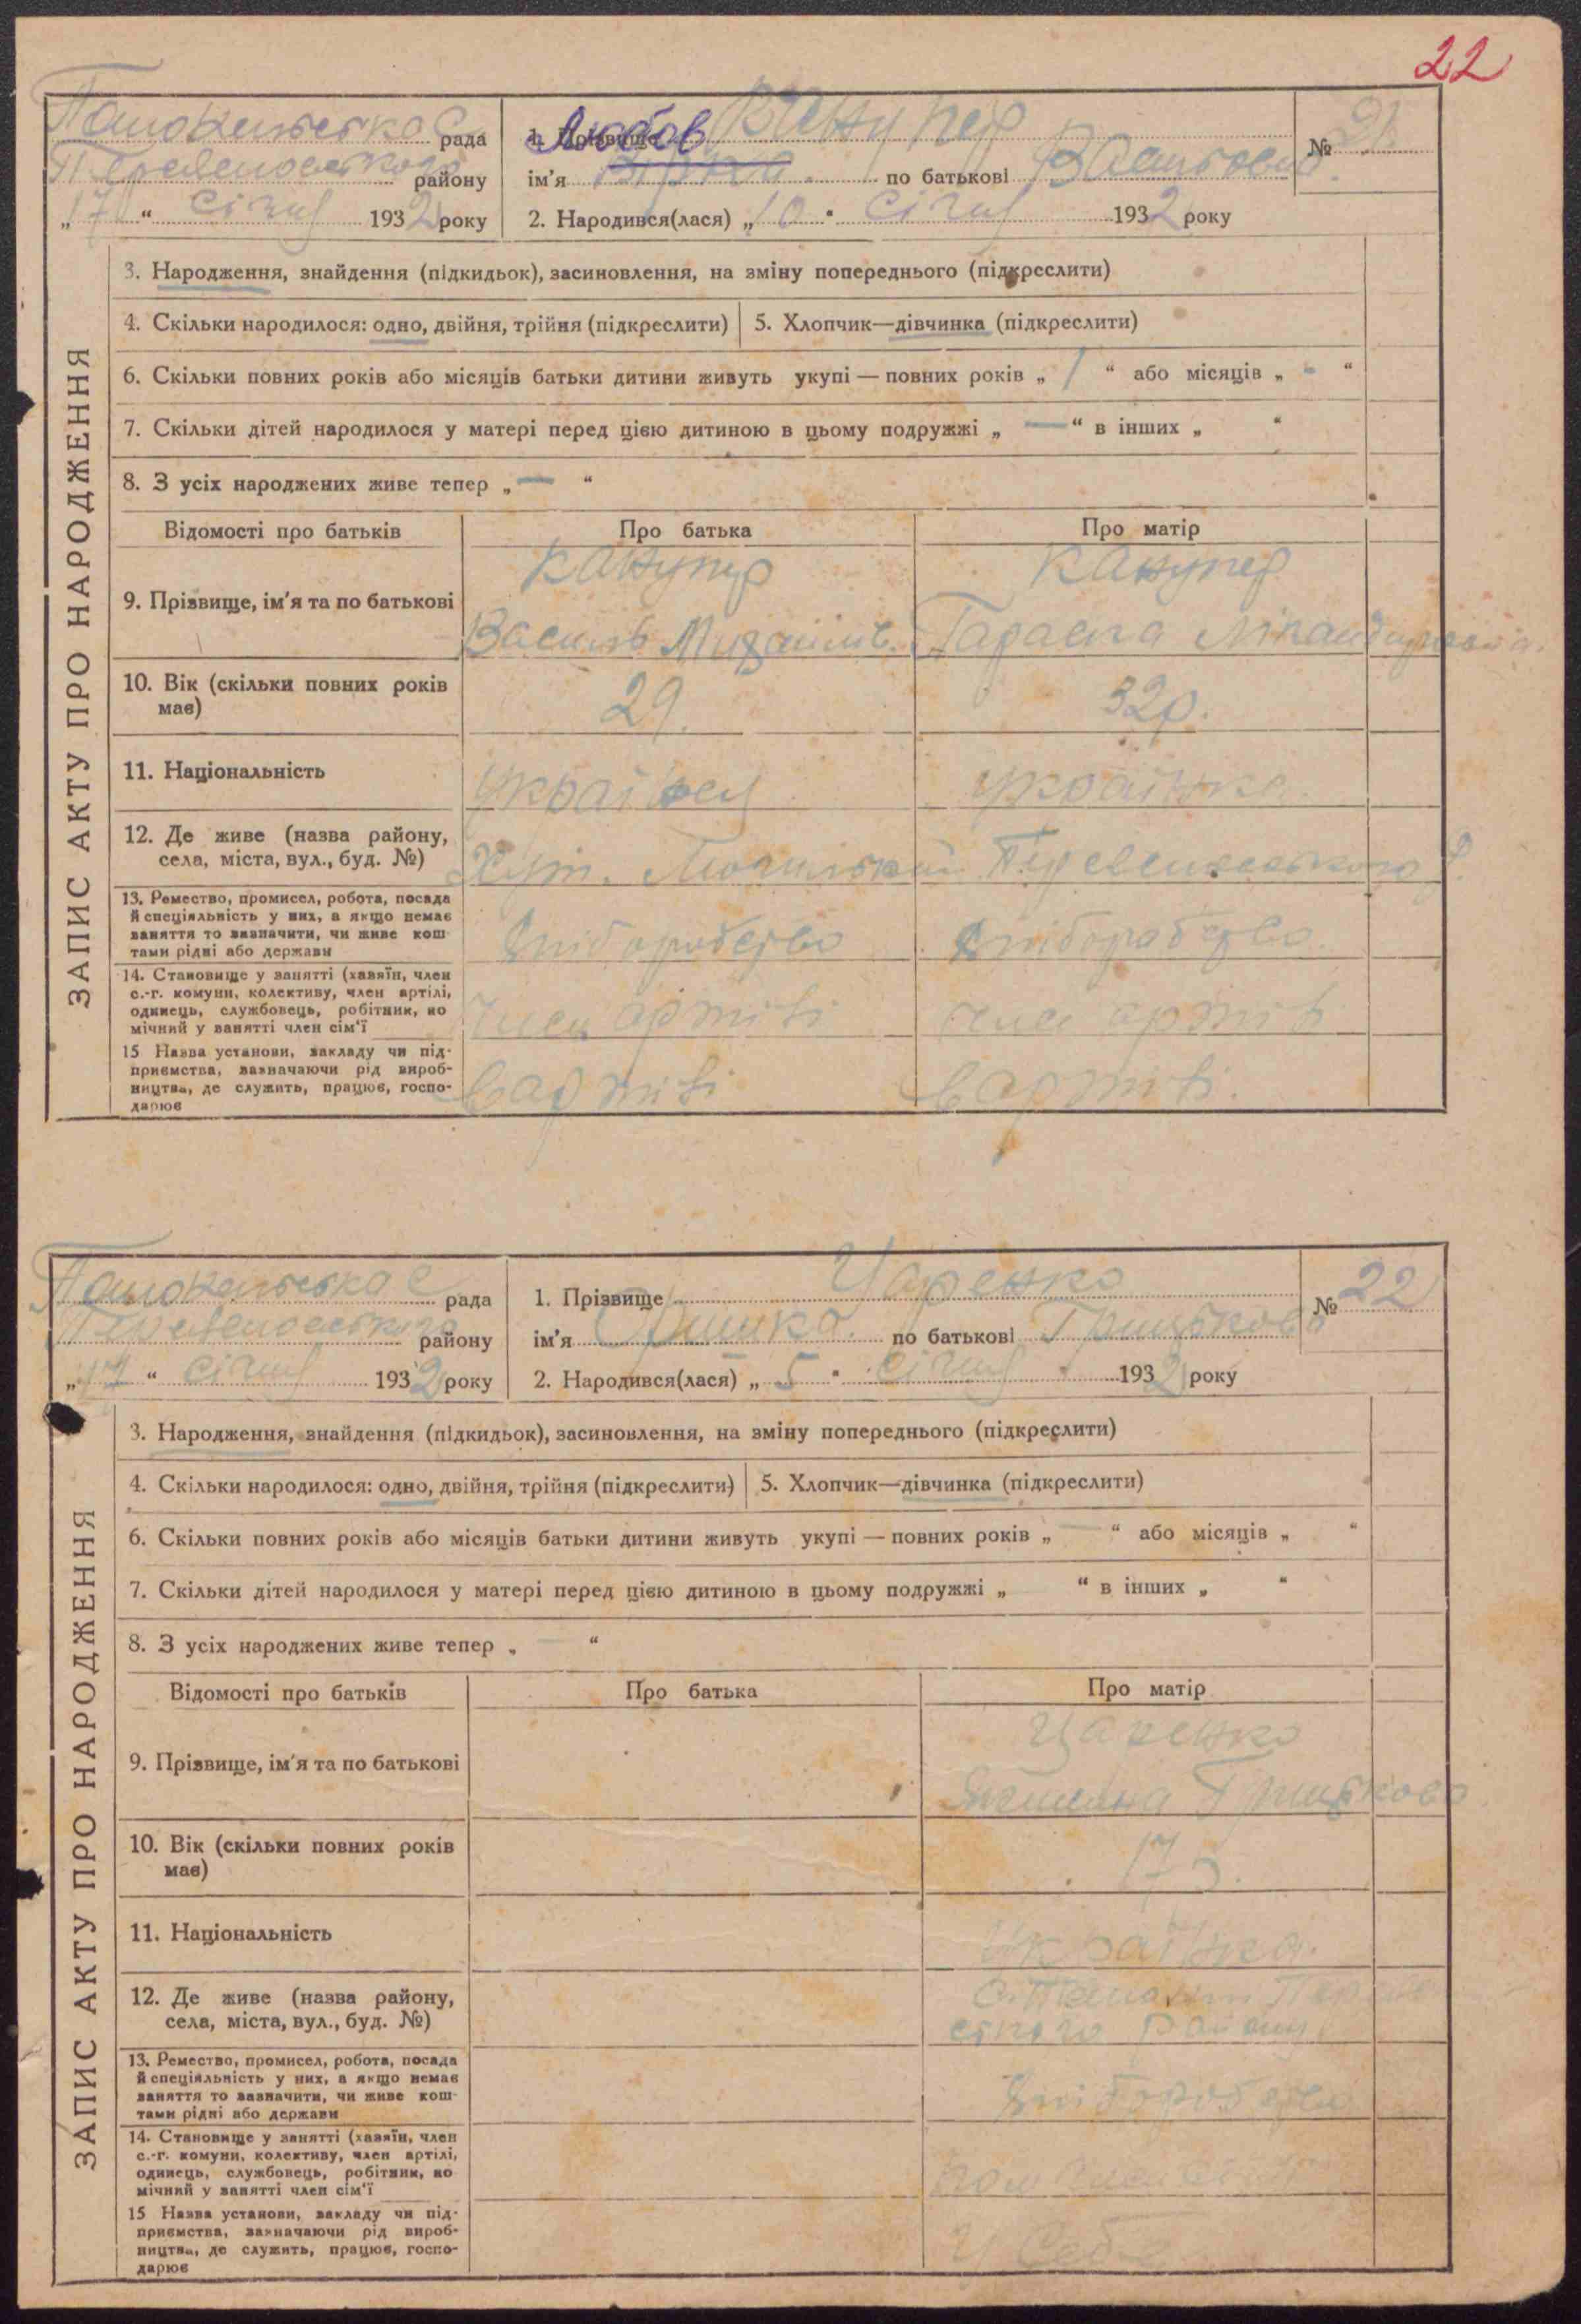 22
рада
району
„17“ січня 1932 року
Любов
1. Прізвище
ім'я по батькові
2. Народився(лася) „10“ січня 1932 року
№ 21
ЗАПИС АКТУ ПРО НАРОДЖЕННЯ
3. Народження, знайдення (підкидьок), засиновлення, на зміну попереднього (підкреслити)
4. Скільки народилося: одно, двійня, трійня (підкреслити) 5. Хлопчик—дівчинка (підкреслити)
6. Скільки повних років або місяців батьки дитини живуть укупі — повних років „ 1 “ або місяців „ - “
7. Скільки дітей народилося у матері перед цією дитиною в цьому подружжі „ — “ в інших „ “
8. З усіх народжених живе тепер „ — “
Відомості про батьків Про батька Про матір
Канупер Канупер
9. Прізвище, ім'я та по батькові
Василь
10. Вік (скільки повних років
має)
29. 32р.
11. Національність
Українец українка.
12. Де живе (назва району,
села, міста, вул., буд. №)
Хут.
13. Ремество, промисел, робота, посада
й спеціяльність у них, а якщо немає
заняття то зазначити, чи живе кош-
тами рідні або держави
хліборобство хліборобство.
14. Становище у занятті (хазяїн, член
с.-г. комуни, колективу, член артілі,
одинець, службовець, робітник, по
мічний у занятті член сім'ї
член артілі член артілі
15 Назва установи, закладу чи під-
приємства, зазначаючи рід вироб-
ництва, де служить, працює, госпо-
дарює
в артілі в артілі.
рада
району
„17“ січня 1932 року
1. Прізвище Царенко
ім'я по батькові
2. Народився(лася) „5“ січня 1932 року
№ 22
ЗАПИС АКТУ ПРО НАРОДЖЕННЯ
3. Народження, знайдення (підкидьок), засиновлення, на зміну попереднього (підкреслити)
4. Скільки народилося: одно, двійня, трійня (підкреслити) 5. Хлопчик—дівчинка (підкреслити)
6. Скільки повних років або місяців батьки дитини живуть укупі — повних років „ — “ або місяців „ “
7. Скільки дітей народилося у матері перед цією дитиною в цьому подружжі „ “ в інших „ “
8. З усіх народжених живе тепер „ — “
Відомості про батьків Про батька Про матір
Царенко
9. Прізвище, ім'я та по батькові
10. Вік (скільки повних років
має)
11. Національність
Українка.
12. Де живе (назва району,
села, міста, вул., буд. №)
району
13. Ремество, промисел, робота, посада
й спеціяльність у них, а якщо немає
заняття то зазначити, чи живе кош-
тами рідні або держави
хліборобство
14. Становище у занятті (хазяїн, член
с.-г. комуни, колективу, член артілі,
одинець, службовець, робітник, по
мічний у занятті член сім'ї
15 Назва установи, закладу чи під-
приємства, зазначаючи рід вироб-
ництва, де служить, працює, госпо-
дарює
У себе